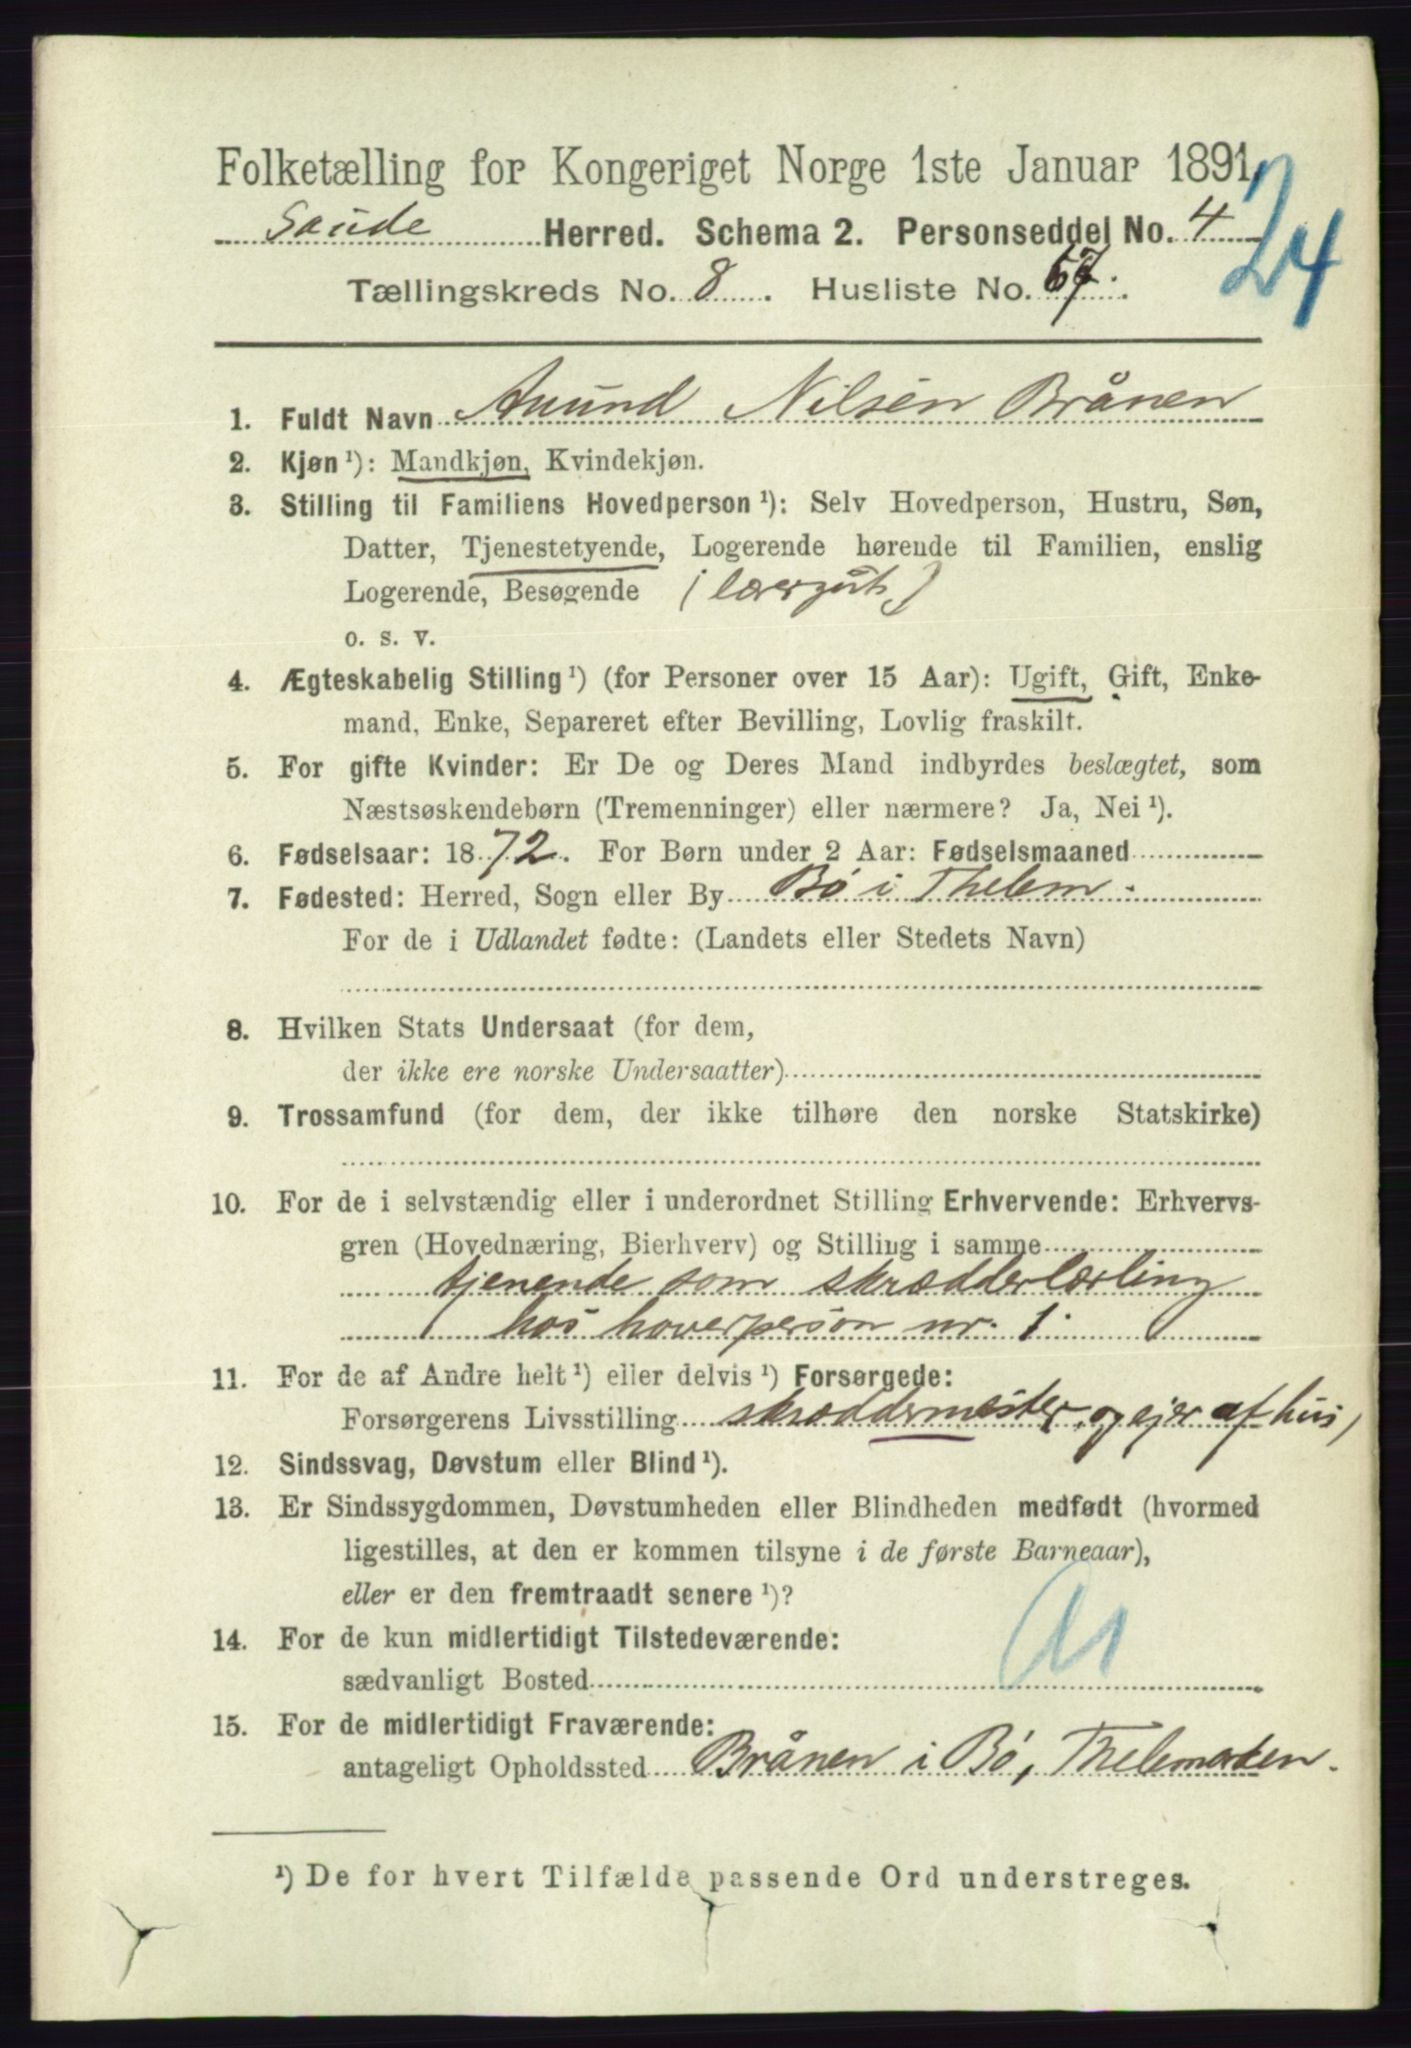 Folketælling for Kongeriget Norge 1ste Januar 1891.
24
Saude Herred. Schema 2. Personseddel No. 4
Tællingskreds No. 8. Husliste No. 67.
1. Fuldt Navn Amund Nilsen Brånen
2. Kjøn ¹): Mandkjøn, Kvindekjøn.
3. Stilling til Familiens Hovedperson ¹): Selv Hovedperson, Hustru, Søn,
Datter, Tjenestetyende, Logerende hørende til Familien, enslig
Logerende, Besøgende (læregut)
o. s. v.
4. Ægteskabelig Stilling ¹) (for Personer over 15 Aar): Ugift, Gift, Enke-
mand, Enke, Separeret efter Bevilling, Lovlig fraskilt.
5. For gifte Kvinder: Er De og Deres Mand indbyrdes beslægtet, som
Næstsøskendebørn (Tremenninger) eller nærmere? Ja, Nei ¹).
6. Fødselsaar: 1872. For Børn under 2 Aar: Fødselsmaaned
7. Fødested: Herred, Sogn eller By Bø i Thelem.
For de i Udlandet fødte: (Landets eller Stedets Navn)
8. Hvilken Stats Undersaat (for dem,
der ikke ere norske Undersaatter)
9. Trossamfund (for dem, der ikke tilhøre den norske Statskirke)
10. For de i selvstændig eller i underordnet Stilling Erhvervende: Erhvervs-
gren (Hovednæring, Bierhverv) og Stilling i samme
tjenende som skrædderlærling
hos hoverperson nr. 1.
11. For de af Andre helt ¹) eller delvis ¹) Forsørgede:
Forsørgerens Livsstilling skræddermester, og ejer af hus,
12. Sindssvag, Døvstum eller Blind ¹).
13. Er Sindssygdommen, Døvstumheden eller Blindheden medfødt (hvormed
ligestilles, at den er kommen tilsyne i de første Barneaar),
eller er den fremtraadt senere ¹)?
14. For de kun midlertidigt Tilstedeværende:
sædvanligt Bosted
15. For de midlertidigt Fraværende:
antageligt Opholdssted Brånen i Bø, Thelemarken.
¹) De for hvert Tilfælde passende Ord understreges.